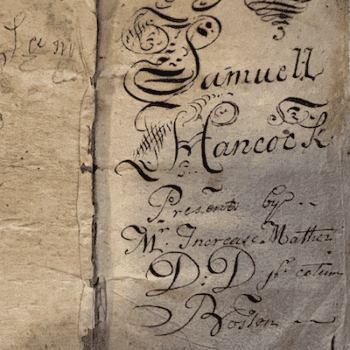 Samuell
Hancock
Present by
Mr. Increase Mather
D: D
Boston